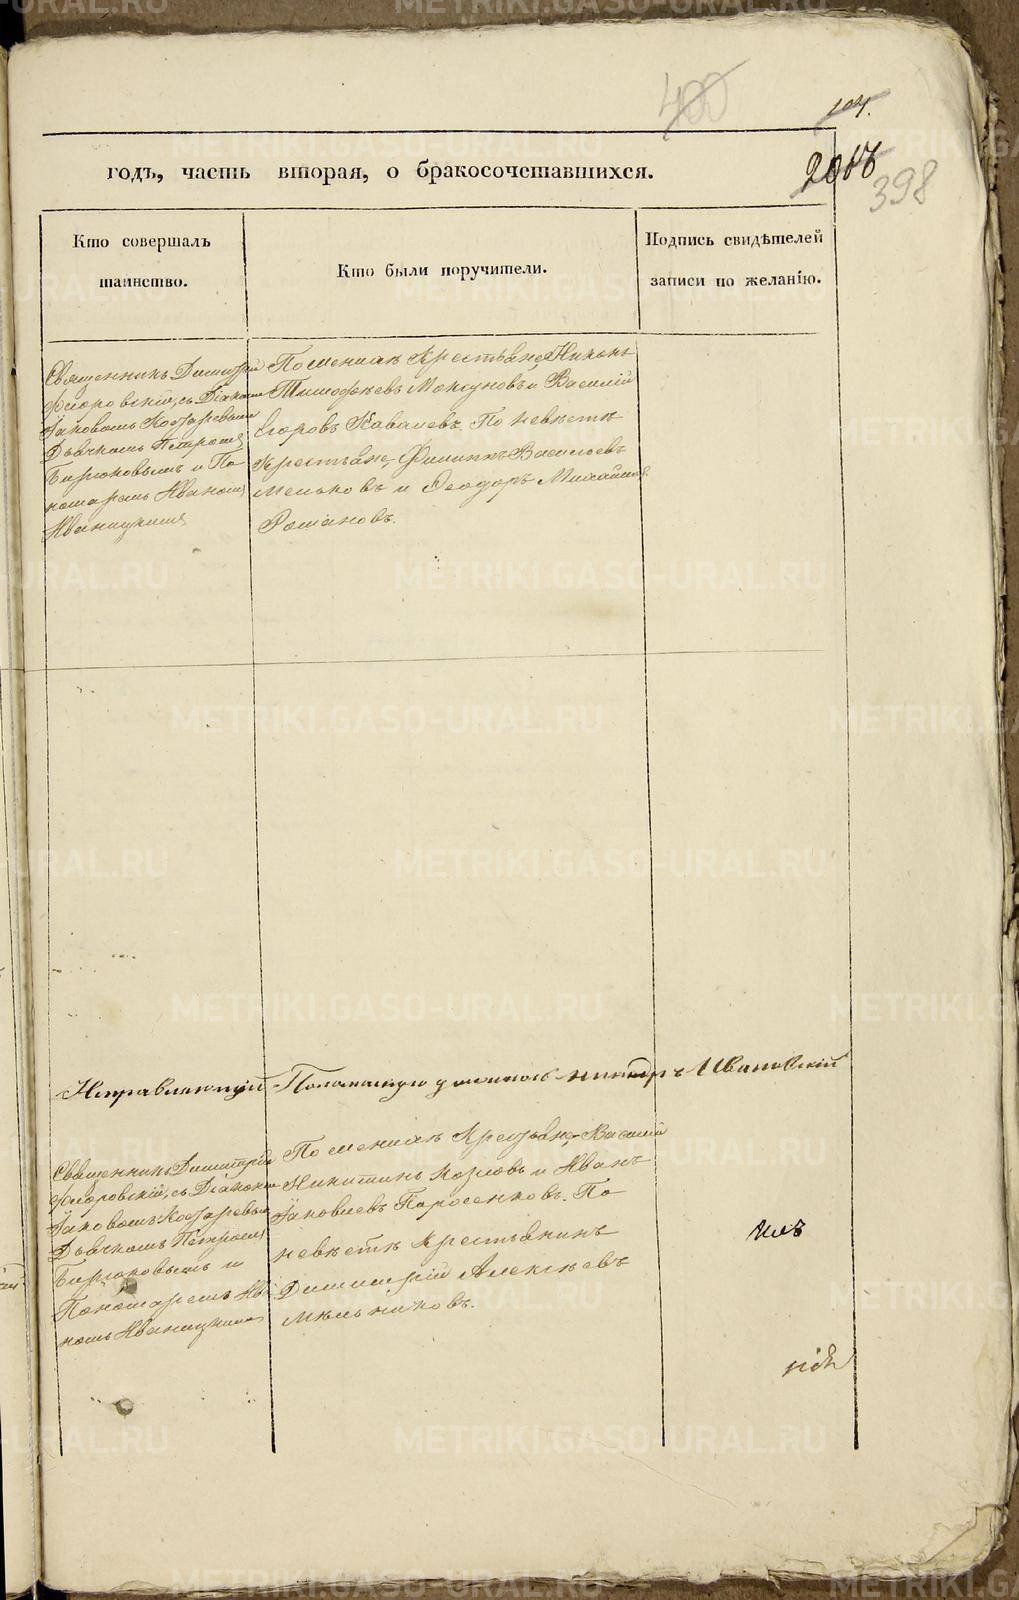 400
104.
годъ, часть вторая, о бракосочетавшихся.
398
Кто совершалъ
таинство.
Кто были поручители.
Подпись свидѣтелей
записи по желанію.
Священникъ Димитрій
Флоровскій, съ Діакономъ
Іаковомъ Косаревымъ
Дьячкомъ Петромъ
Бирюковымъ и По
номаремъ Иваномъ
Иваницкимъ
По женихѣ Крестьяне Никонъ
Тимофѣевъ Мокгуновъ и Василій
Егоровъ Ковалевъ. По невѣстѣ
Крестьяне, Филиппъ Васильевъ
Мельковъ и Ѳеодоръ Михайлов
Романовъ.
Исправляющій Пономарскую должность Ивановскій
Священникъ Димитрій
Флоровскій, съ Діакономъ
Іаковомъ Косаревымъ
Дьячкомъ Петромъ
Бирюковымъ и
Пономаремъ Ива
номъ Иваницкимъ
По женихѣ Крестьяне Василій
Никитинъ Козловъ и Иванъ
Іаковлевъ Паросенковъ. По
невѣстѣ Крестьянинъ
Димитрій Алексѣевъ
Мѣльниковъ.
METRIKI.GASO-URAL.RU